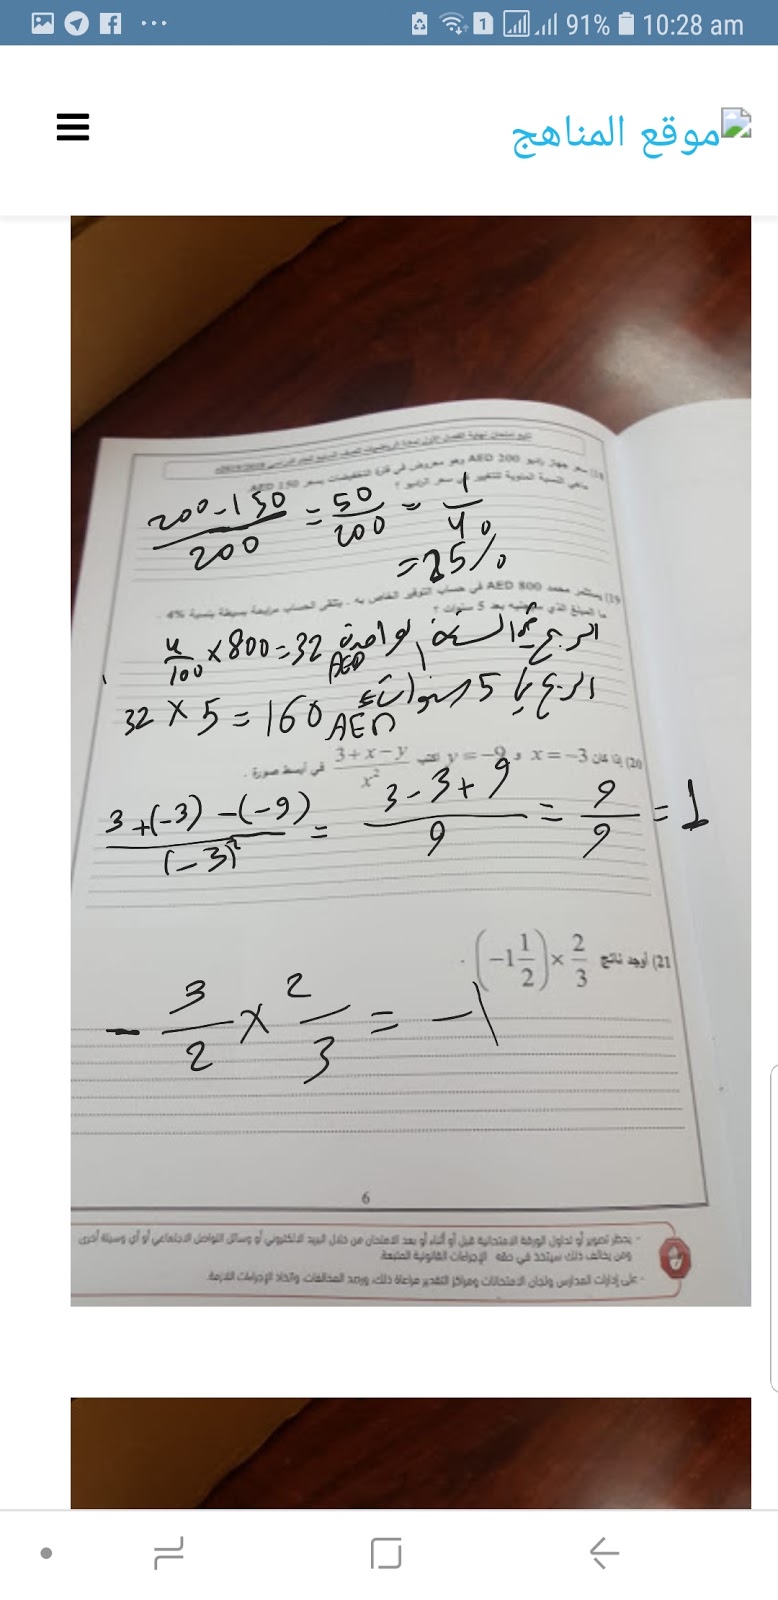 91% 10:28 am
موقع المناهج
تابع امتحان نهاية الفصل الأول لمادة الرياضيات للصف السابع للعام الدراسي 2018/2019م
18) سعر جهاز راديو AED 200 وهو معروض في فترة التخفيضات بسعر AED 150
ماهي النسبة المئوية للتغيير في سعر الراديو ؟
200-150/200 = 50/200 = 1/4
= 25%
19) يستثمر محمد AED 800 في حساب التوفير الخاص به . يتلقى الحساب مرابحة بسيطة بنسبة 4% .
ما المبلغ الذي سيجنيه بعد 5 سنوات ؟
الربح السنة الواحدة 4/100 × 800 = 32 AED
الربح 5 سنوات
32 × 5 = 160 AED
20) إذا كان x = −3 و y = −9 اكتب 3+x−y/x² في أبسط صورة .
3+(-3)-(-9)/(-3)² = 3-3+9/9 = 9/9 = 1
21) أوجد ناتج (−1 1/2) × 2/3 .
- 3/2 × 2/3 = -1
6
- يحظر تصوير أو تداول الورقة الامتحانية قبل أو أثناء أو بعد الامتحان من خلال البريد الالكتروني أو وسائل التواصل الاجتماعي أو أي وسيلة أخرى
ومن يخالف ذلك سيتخذ في حقه الإجراءات القانونية المتبعة.
- على إدارات المدارس ولجان الامتحانات ومراكز التقدير مراعاة ذلك، ورصد المخالفات، واتخاذ الإجراءات اللازمة.